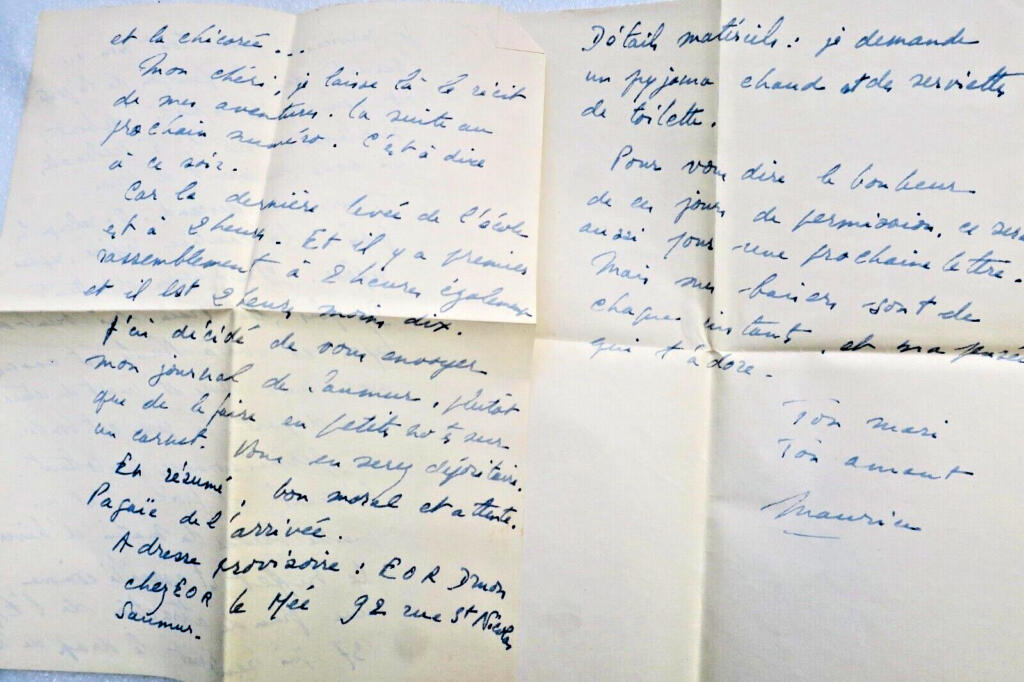 et la chicorée...
Mon chéri, je laisse là le récit
de mes aventures. La suite au
prochain numéro. C'est à dire
à ce soir.
Car la dernière levée de l'école
est à 2 heures. Et il y a premier
rassemblement à 2 heures également
et il est 2 heures moins dix.
J'ai décidé de vous envoyer
mon journal de Saumur, plutôt
que de le faire en petits notes sur
un carnet. Vous en serez dépositaire.
En résumé, bon moral et attente.
Pagaïe de l'arrivée.
Adresse provisoire : EOR
chez EOR le Méé 92 rue St Nicolas
Saumur.
Détails matériels : je demande
un pyjama chaud et des serviettes
de toilette.
Pour vous dire le bonheur
de ces jours de permission, ce sera
aussi pour une prochaine lettre.
Mais mes baisers sont de
chaque instant, et ma pensée
qui t'adore.
Ton mari
Ton amant
Maurice